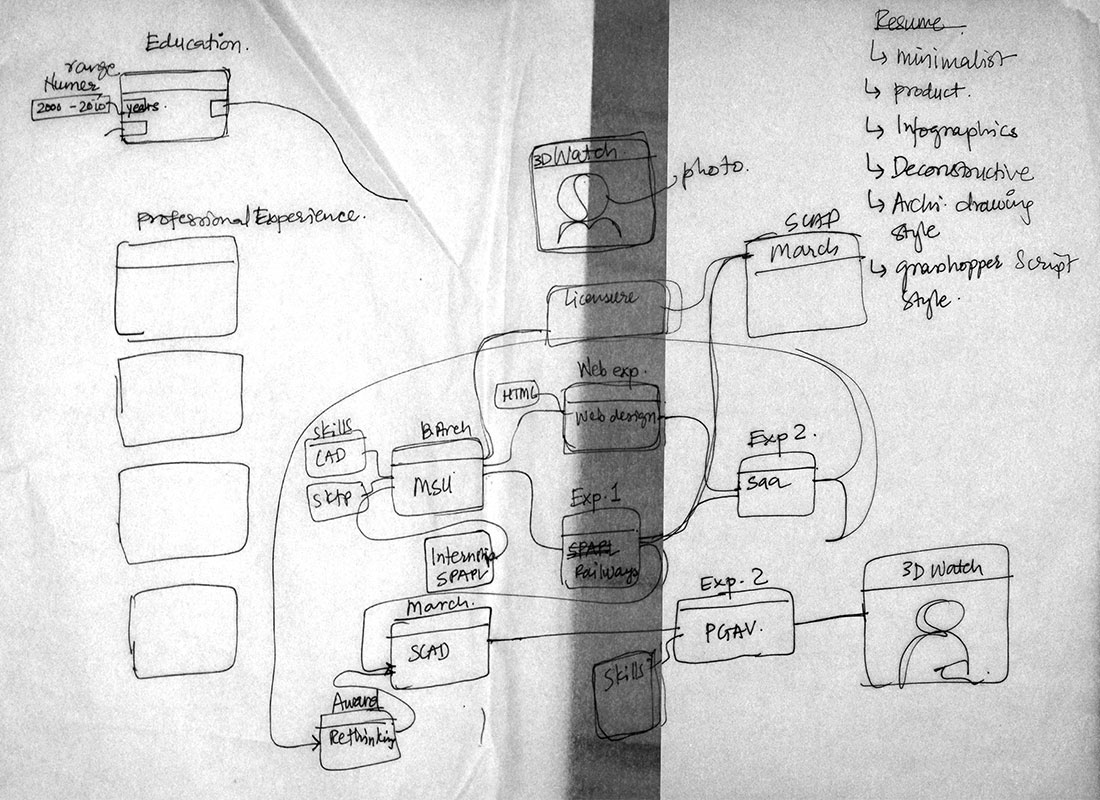 Education.
range
Numer
2000 - 2010
years.
Professional Experience.
3D Watch.
photo.
Resume
↳ minimalist
↳ product.
↳ Infographics
↳ Deconstructive
↳ Archi. drawing
style
↳ grasshopper Script
style.
SCAD
March
Licensure
Web exp.
HTML
Web design
Skills
CAD
SKtP
B.Arch
MSU
Exp. 2.
Exp. 1
SPAPL
Railways
Internship
SPAPL
March.
SCAD
Exp. 2
PGAV.
3D Watch
Skills
Award
Rethinking